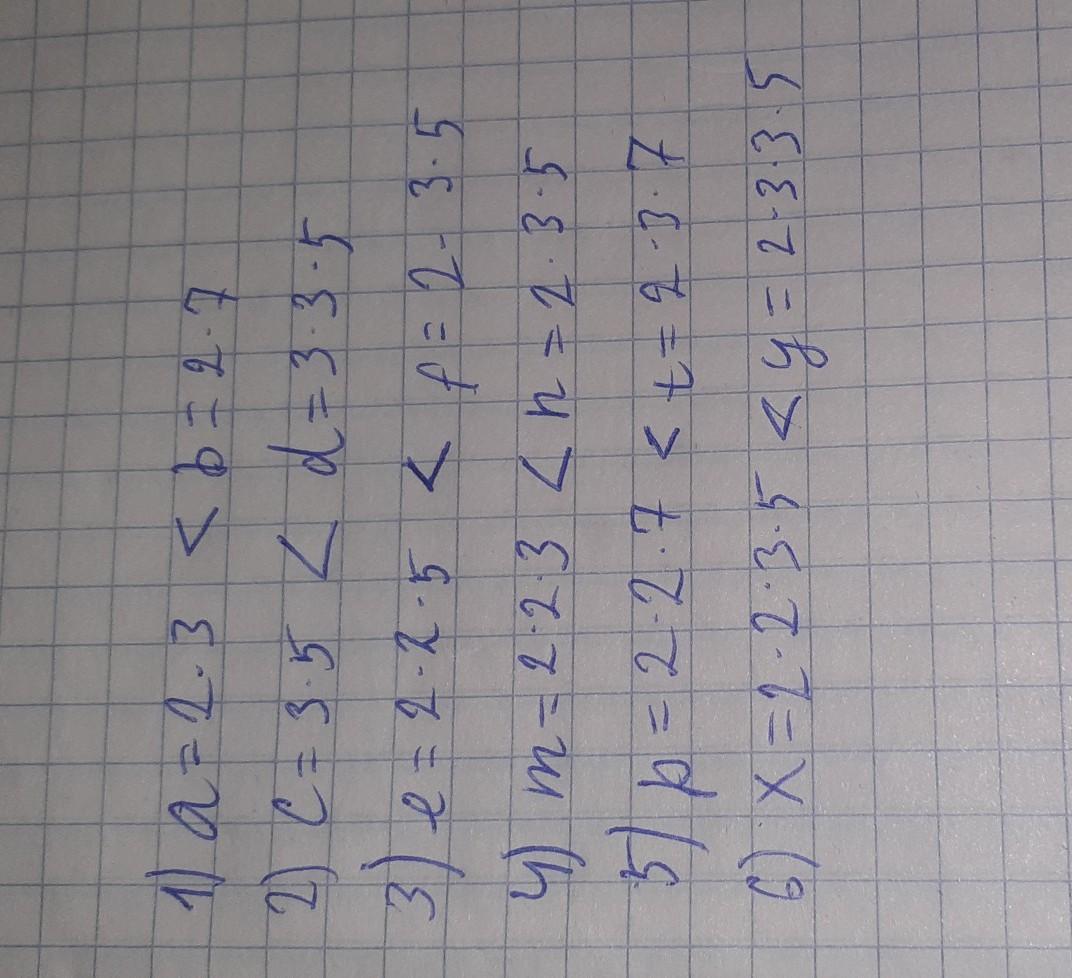 1) a=2·3 < b=2·7
2) c=3·5 < d=3·3·5
3) e=2·2·5 < f=2·3·5
4) m=2·2·3 < n=2·3·5
5) p=2·2·7 < t=2·3·7
6) x=2·2·3·5 < y=2·3·3·5